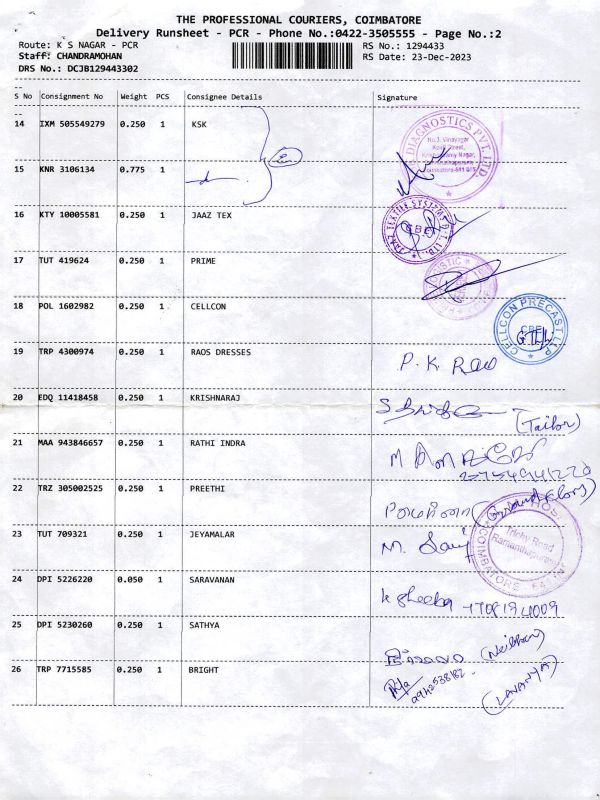 THE PROFESSIONAL COURIERS, COIMBATORE
Delivery Runsheet - PCR - Phone No.:0422-3505555 - Page No.:2
Route: K S NAGAR - PCR RS No.: 1294433
Staff: CHANDRAMOHAN RS Date: 23-Dec-2023
DRS No.: DCJB129443302
S No Consignment No Weight PCS Consignee Details Signature
14 IXM 505549279 0.250 1 KSK
DIAGNOSTICS PVT. LTD
No.3, Vinayagar
Kovil Street,
15 KNR 3106134 0.775 1
16 KTY 10005581 0.250 1 JAAZ TEX
JAAZ TEXTILE SYSTEMS PVT. LTD.
CBE
17 TUT 419624 0.250 1 PRIME
18 POL 1602982 0.250 1 CELLCON
CELLCON PRECAST LLP
CBE
19 TRP 4300974 0.250 1 RAOS DRESSES
P. K Rao
20 EDQ 11418458 0.250 1 KRISHNARAJ
(Tailor)
21 MAA 943846657 0.250 1 RATHI INDRA
22 TRZ 305002525 0.250 1 PREETHI
23 TUT 709321 0.250 1 JEYAMALAR
Trichy Road
Ramanathapuram
COIMBATORE
24 DPI 5226220 0.050 1 SARAVANAN
K Sheeba
25 DPI 5230260 0.250 1 SATHYA
26 TRP 7715585 0.250 1 BRIGHT
(LAVANYA)